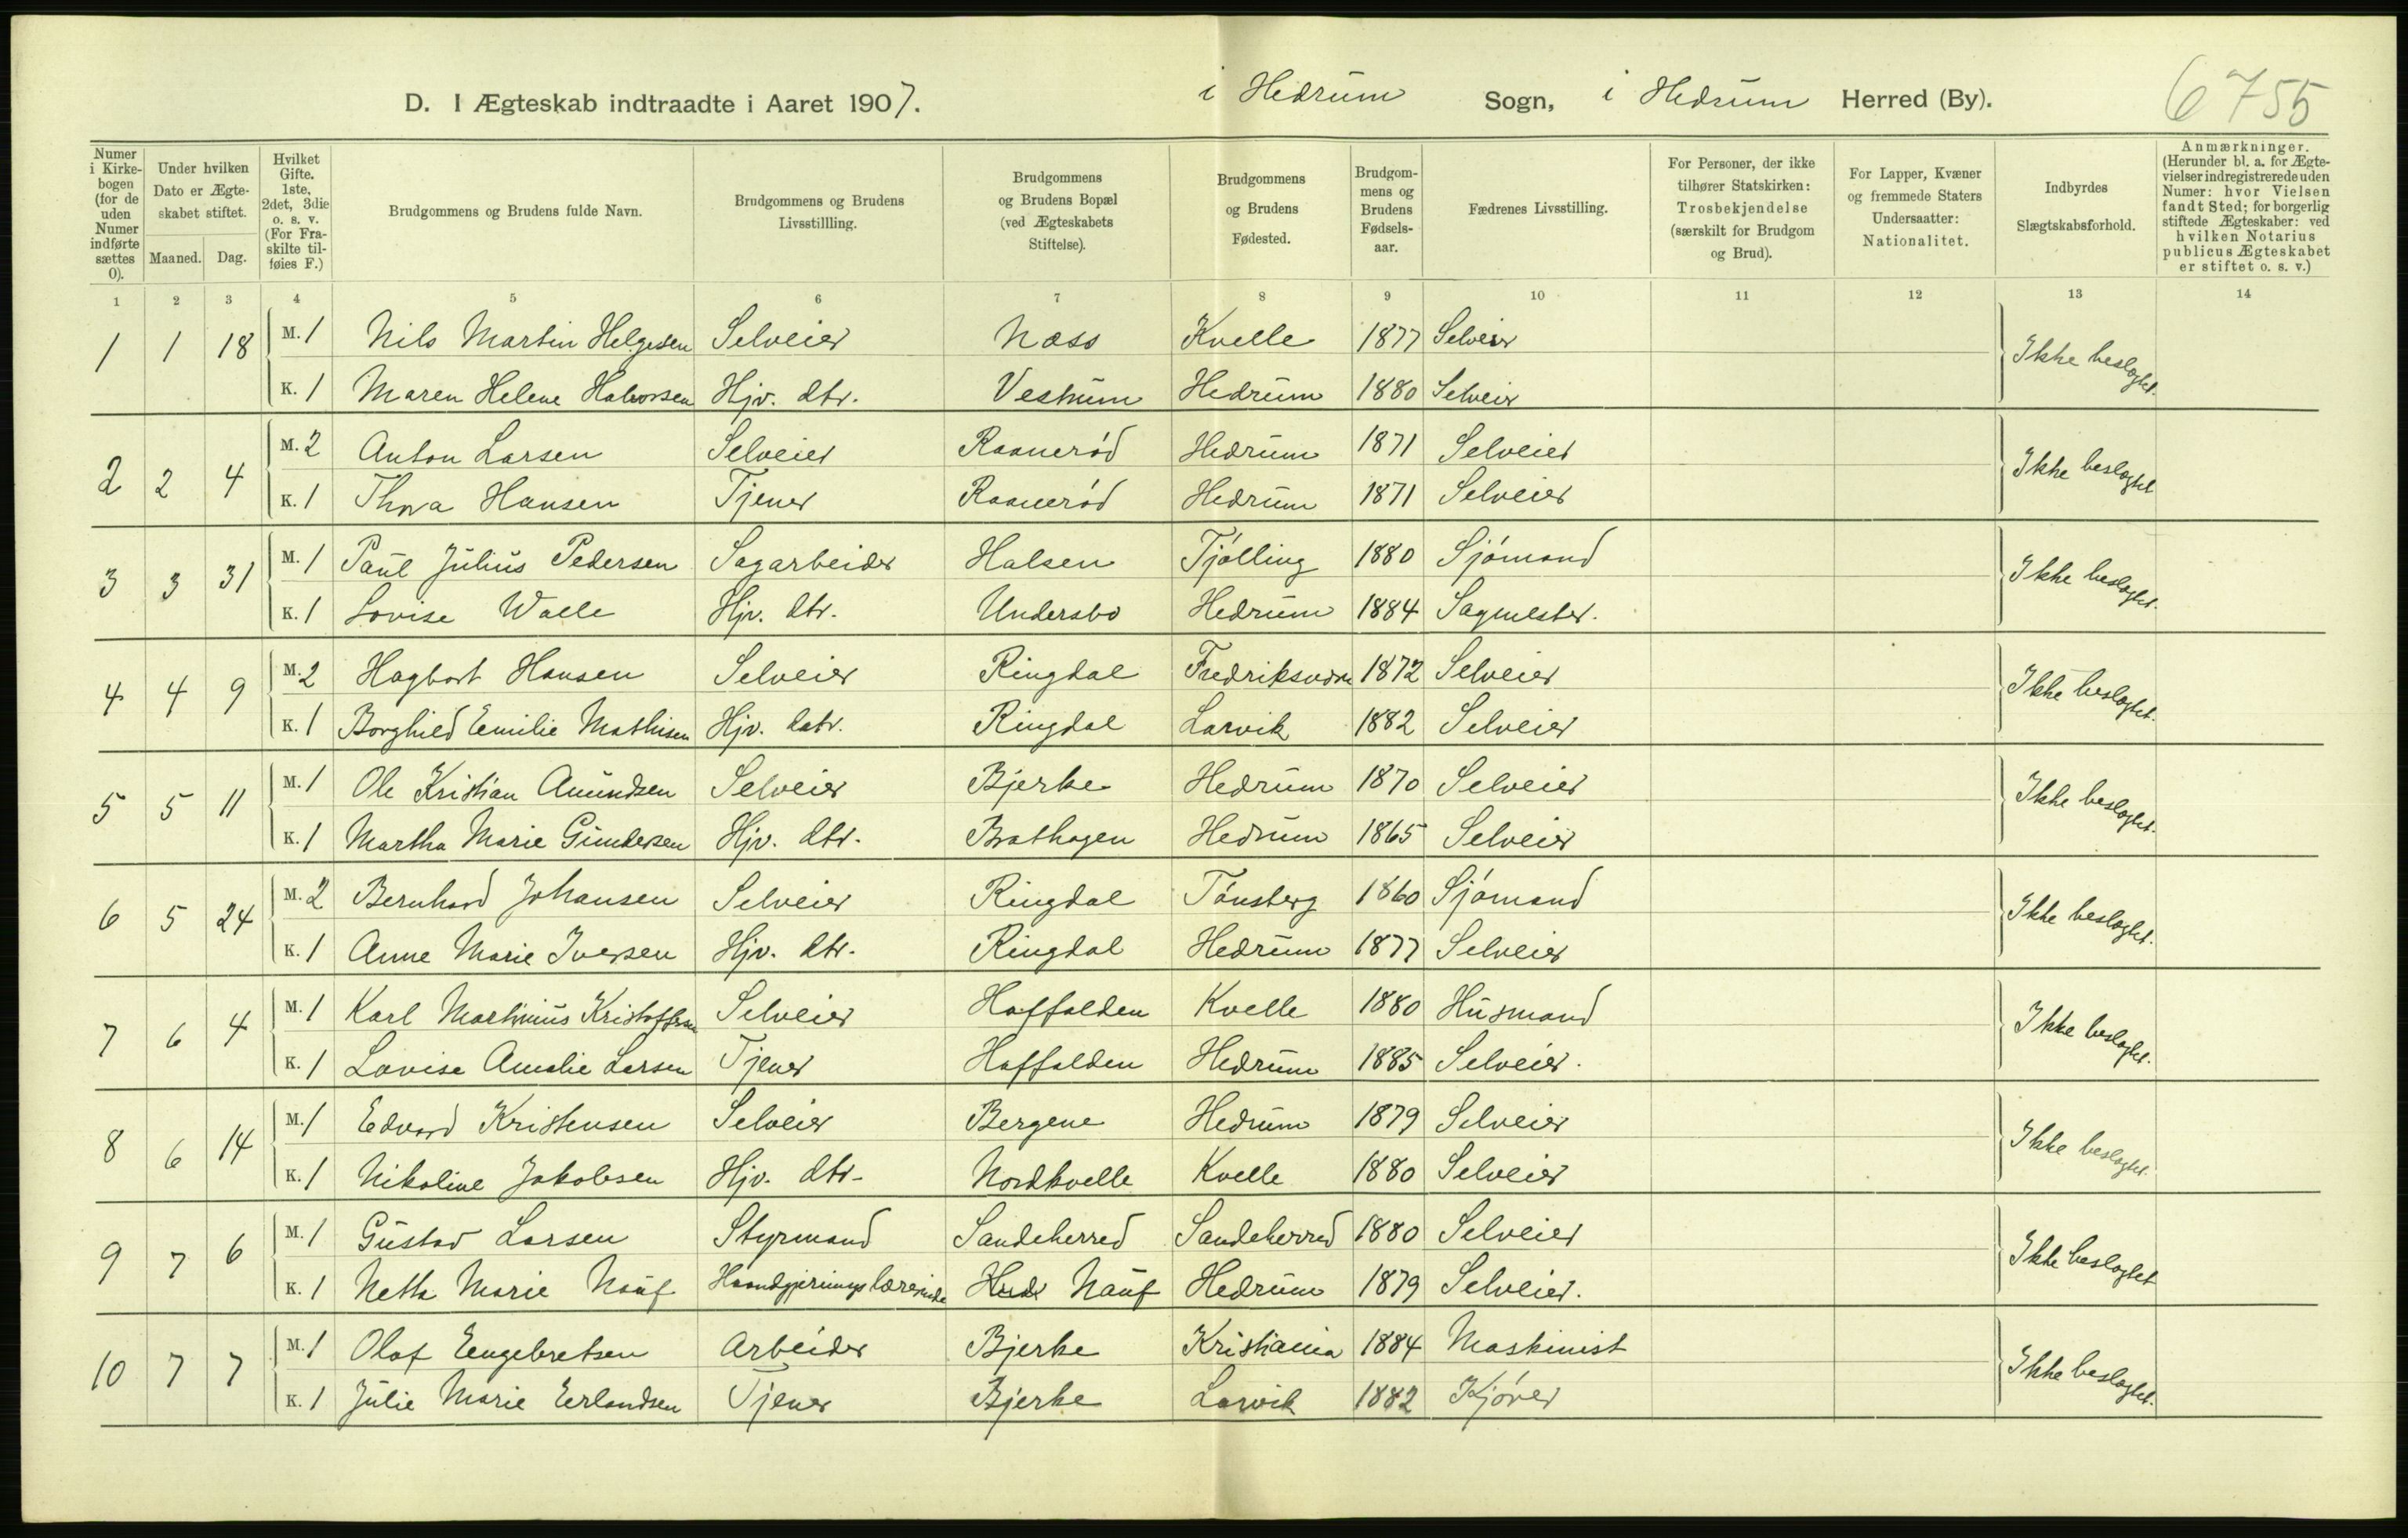 D. I Ægteskab indtraadte i Aaret 1907. i Hedrum Sogn, i Hedrum Herred (By). 6755
Numer i Kirkebogen (for de uden Numer indførte sættes 0).
Under hvilken Dato er Ægteskabet stiftet.
Maaned. Dag.
Hvilket Gifte. 1ste, 2det, 3die o. s. v. (For Fraskilte tilføies F.)
Brudgommens og Brudens fulde Navn.
Brudgommens og Brudens Livsstillling.
Brudgommens og Brudens Bopæl (ved Ægteskabets Stiftelse).
Brudgommens og Brudens Fødested.
Brudgommens og Brudens Fødselsaar.
Fædrenes Livsstilling.
For Personer, der ikke tilhører Statskirken: Trosbekjendelse (særskilt for Brudgom og Brud).
For Lapper, Kvæner og fremmede Staters Undersaatter: Nationalitet.
Indbyrdes Slægtskabsforhold.
Anmærkninger. (Herunder bl. a. for Ægtevielser indregistrerede uden Numer: hvor Vielsen fandt Sted; for borgerlig stiftede Ægteskaber: ved hvilken Notarius publicus Ægteskabet er stiftet o. s. v.)
1 2 3 4 5 6 7 8 9 10 11 12 13 14
1 1 18 M. 1 Nils Martin Helgesen Selveier Næss Kvelle 1877 Selveier Ikke beslægtet.
K. 1 Maren Helene Halvorsen Hjv. dtr. Vestrum Hedrum 1880 Selveier
2 2 4 M. 2 Anton Larsen Selveier Raanerød Hedrum 1871 Selveier Ikke beslægtet
K. 1 Thora Hansen Tjener Raanerød Hedrum 1871 Selveier
3 3 31 M. 1 Paul Julius Pedersen Sagarbeider Halsen Tjølling 1880 Sjømand Ikke beslægtet.
K. 1 Lovise Walle Hjv. dtr. Undersbo Hedrum 1884 Sagmester.
4 4 9 M. 2 Hagbart Hansen Selveier Ringdal Fredriksværn 1872 Selveier Ikke beslægtet.
K. 1 Borghild Emilie Mathisen Hjv. datr. Ringdal Larvik 1882 Selveier
5 5 11 M. 1 Ole Kristian Amundsen Selveier Bjerke Hedrum 1870 Selveier Ikke beslægtet.
K. 1 Martha Marie Gundersen Hjv. dtr. Brathagen Hedrum 1865 Selveier
6 5 24 M. 2 Bernhard Johansen Selveier Ringdal Tønsberg 1860 Sjømand Ikke beslægtet.
K. 1 Anne Marie Iversen Hjv. dtr. Ringdal Hedrum 1877 Selveier
7 6 4 M. 1 Karl Martinius Kristoffersen Selveier Haffalden Kvelle 1880 Husmand Ikke beslægtet.
K. 1 Lovise Amalie Larsen Tjener Haffalden Hedrum 1885 Selveier.
8 6 14 M. 1 Edvard Kristensen Selveier Bergene Hedrum 1879 Selveier Ikke beslægtet.
K. 1 Nikoline Jakobsen Hjv. dtr. Nordkvelle Kvelle 1880 Selveier
9 7 6 M. 1 Gustav Larsen Styrmand Sandeherred Sandeherred 1880 Selveier Ikke beslægtet
K. 1 Netta Marie Nauf Haandgjerningslærerinde Nauf Hedrum 1879 Selveier.
10 7 7 M. 1 Olaf Engebretsen Arbeider Bjerke Kristiania 1884 Maskinist Ikke beslægtet.
K. 1 Julie Marie Erlandsen Tjener Bjerke Larvik 1882 Kjører